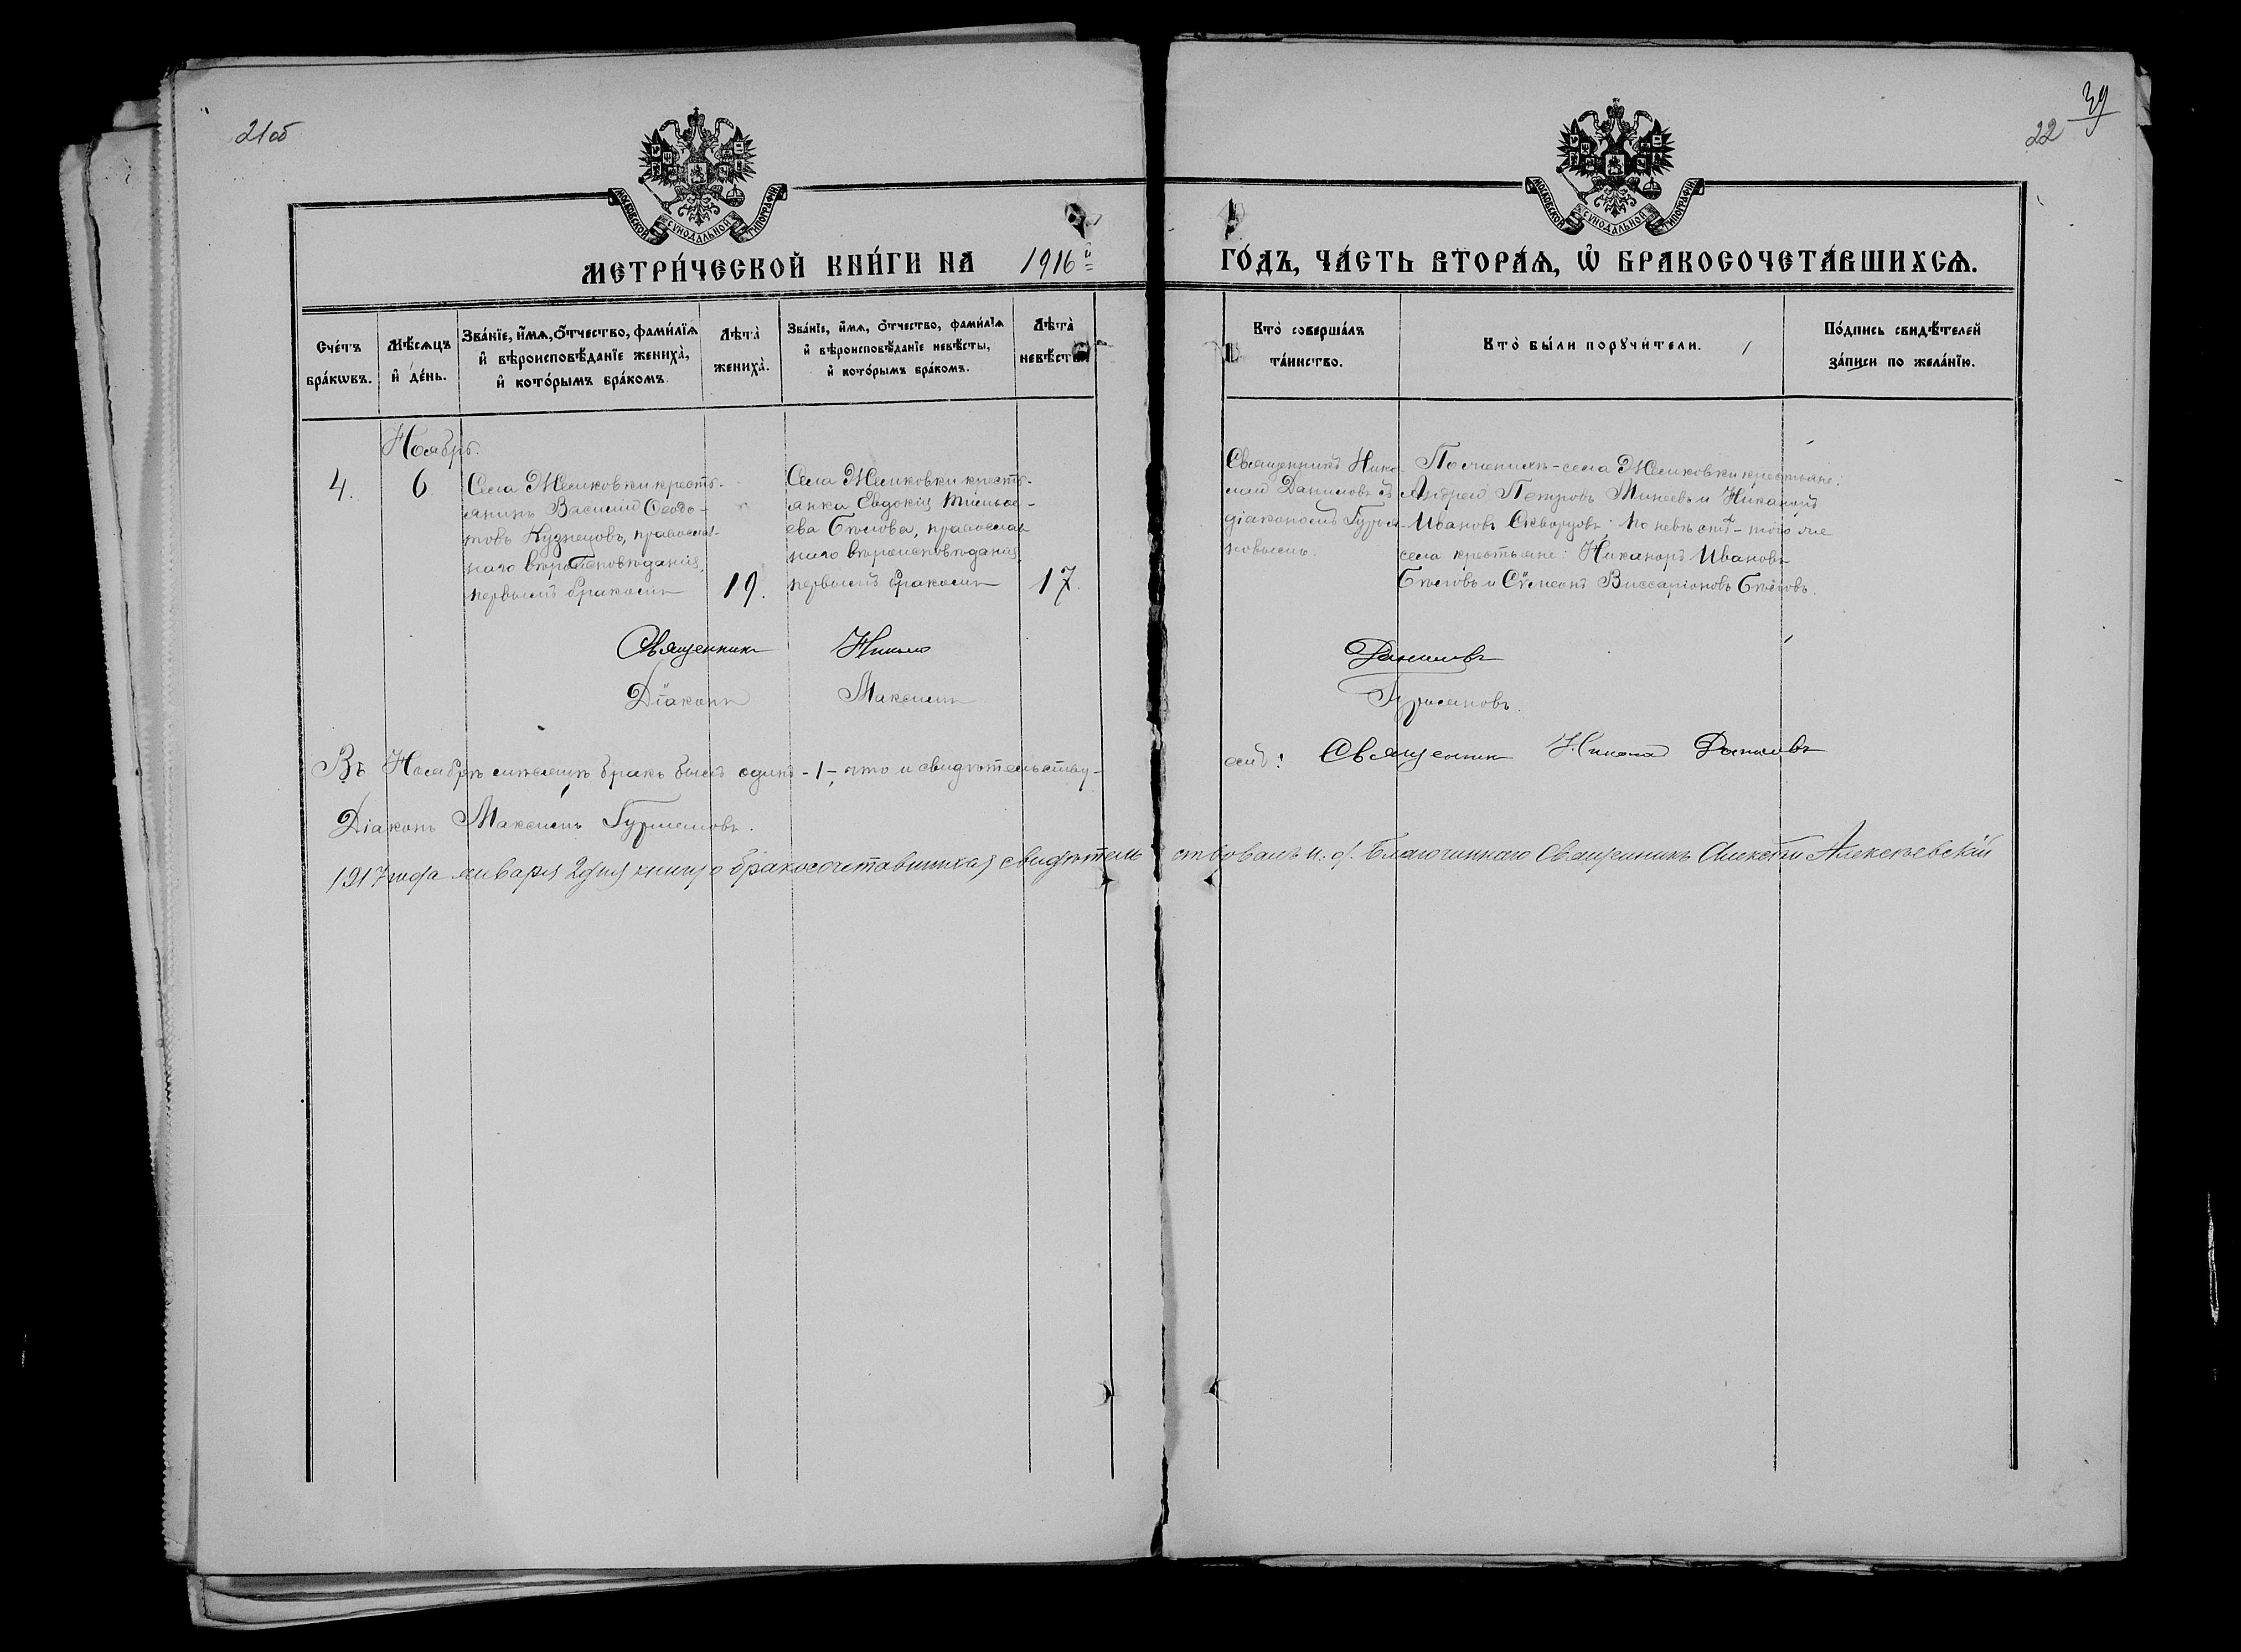 21об
22
39
МОСКОВСКОЙ СУНОДАЛЬНОЙ ТИПОГРАФІИ
МОСКОВСКОЙ СУНОДАЛЬНОЙ ТИПОГРАФІИ
МЕТРИ́ЧЕСКОЙ КНИ́ГИ НА 1916й ГО́ДЪ, ЧА́СТЬ ВТОРА́Я, Ѡ БРАКОСОЧЕТА́ВШИХСЯ.
Сче́тъ бра́кѡвъ.
Мѣ́сяцъ и де́нь.
Зва́нїе, и́мя, о́тчество, фами́лїя и вѣроисповѣ́данїе жениха̀, и кото́рымъ бра́комъ.
Лѣта̀ жениха̀.
Зва́нїе, и́мя, о́тчество, фами́лїя и вѣроисповѣ́данїе невѣ́сты, и кото́рымъ бра́комъ.
Лѣта̀ невѣ́сты.
Кто̀ соверша́лъ та́инство.
Кто̀ бы́ли поручи́тели.
По́дпись свидѣ́телей за́писи по жела́нїю.
Ноябрь.
4.
6
Села Жемковки кресть-
янинъ Василий Ѳеодо-
товъ Кузнецовъ, православ-
наго вѣроисповѣданія,
первымъ бракомъ
19.
Села Жемковки кресть-
янка Евдокія
ева Бѣлова, православ-
наго вѣроисповѣданія,
первымъ бракомъ
17.
Священникъ Нико-
лай Даниловъ съ
діакономъ
новымъ.
По женихѣ - села Жемковки крестьяне:
Андрей Петровъ Минеевъ и Никаноръ
Ивановъ Скворцовъ; по невѣстѣ - того же
села крестьяне: Никаноръ Ивановъ
Бѣловъ и Сѵмеонъ Виссаріоновъ Бѣловъ.
Священникъ Николай Даниловъ
Діаконъ Максимъ
Въ Ноябрѣ мѣсяцѣ бракъ былъ одинъ -1-, что и свидѣтельству-
емъ: Священникъ Николай Даниловъ
Діаконъ Максимъ
1917 года января 2 дня книгу о бракосочетавшихся свидѣтельствовалъ и. д. Благочиннаго Священникъ Алексѣй Алексѣевскій